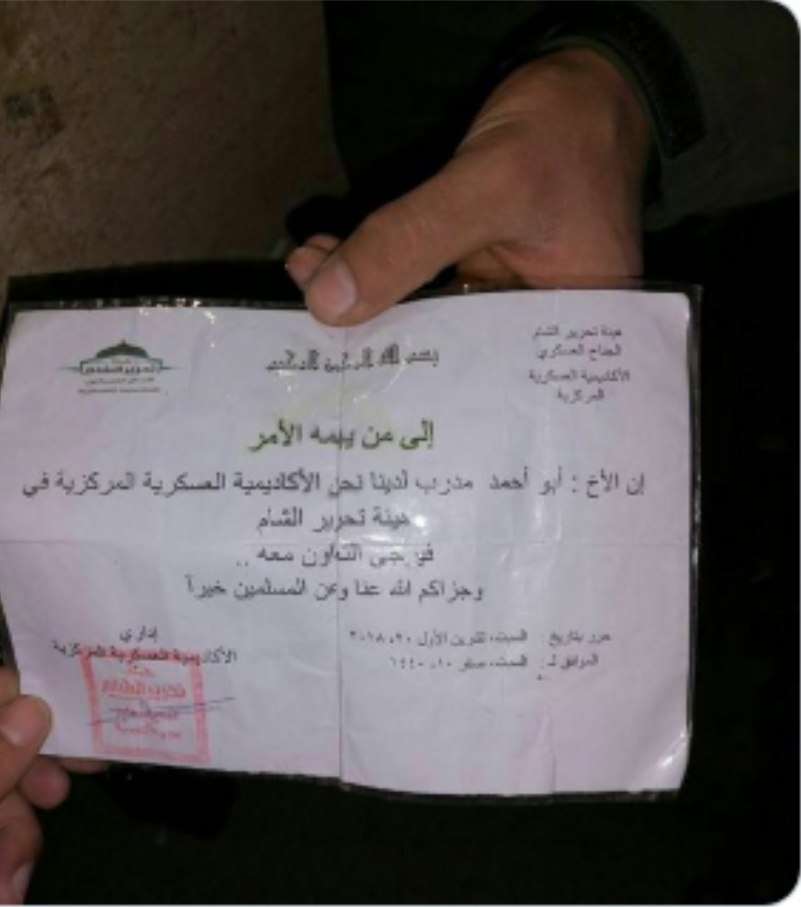 هيئة تحرير الشام
الجناح العسكري
الأكاديمية العسكرية
المركزية
بسم الله الرحمن الرحيم
تحرير الشام
إلى من يهمه الأمر
إن الأخ : أبو أحمد مدرب لدينا نحن الأكاديمية العسكرية المركزية في
هيئة تحرير الشام
فيرجى التعاون معه ..
وجزاكم الله عنا وعن المسلمين خيراً
حرر بتاريخ : السبت، تشرين الأول ٢٠، ٢٠١٨
الموافق لـ : السبت، صفر ١٠، ١٤٤٠
إداري
الأكاديمية العسكرية المركزية
هيئة
تحرير الشام